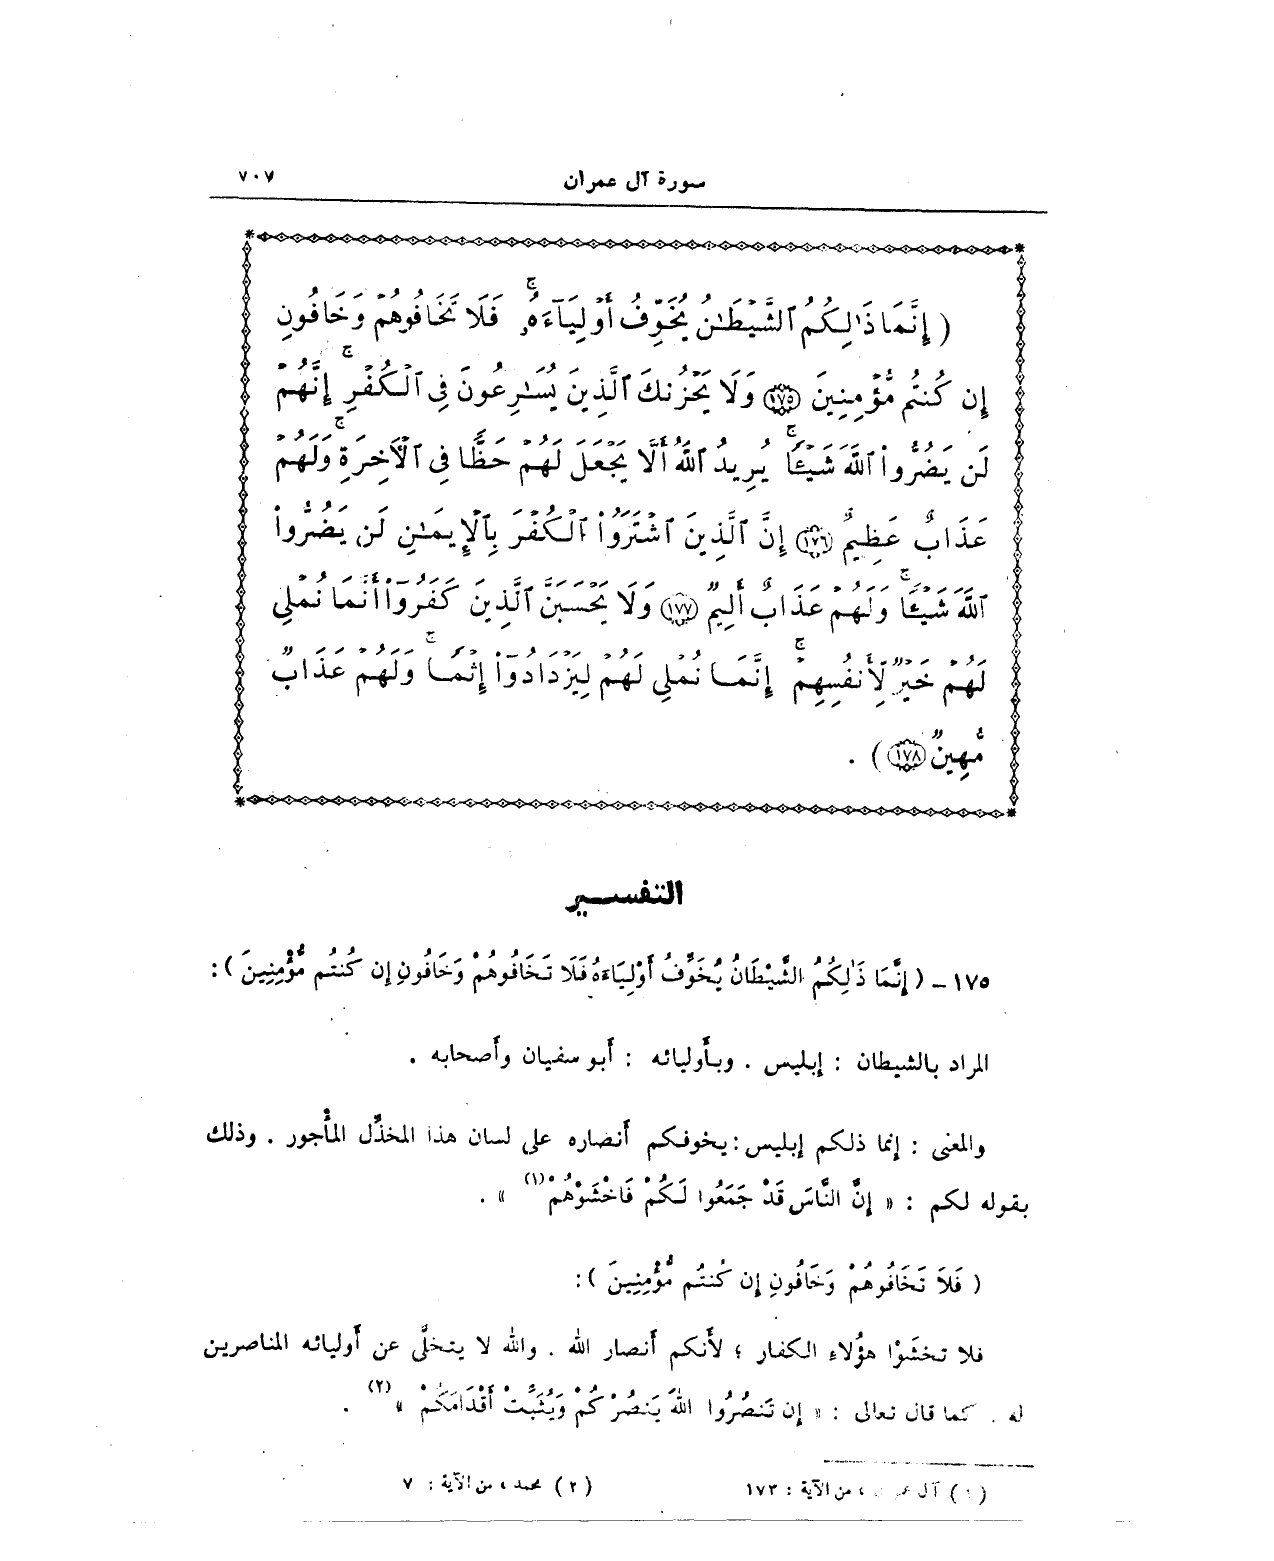 سورة آل عمران ٧٠٧
( إِنَّمَا ذَٰلِكُمُ ٱلشَّيْطَـٰنُ يُخَوِّفُ أَوْلِيَآءَهُۥ ۚ فَلَا تَخَافُوهُمْ وَخَافُونِ
إِن كُنتُم مُّؤْمِنِينَ ﴿١٧٥﴾ وَلَا يَحْزُنكَ ٱلَّذِينَ يُسَـٰرِعُونَ فِى ٱلْكُفْرِ ۚ إِنَّهُمْ
لَن يَضُرُّوا۟ ٱللَّهَ شَيْـًٔا ۚ يُرِيدُ ٱللَّهُ أَلَّا يَجْعَلَ لَهُمْ حَظًّا فِى ٱلْآخِرَةِ ۚ وَلَهُمْ
عَذَابٌ عَظِيمٌ ﴿١٧٦﴾ إِنَّ ٱلَّذِينَ ٱشْتَرَوُا۟ ٱلْكُفْرَ بِٱلْإِيمَـٰنِ لَن يَضُرُّوا۟
ٱللَّهَ شَيْـًٔا ۚ وَلَهُمْ عَذَابٌ أَلِيمٌ ﴿١٧٧﴾ وَلَا يَحْسَبَنَّ ٱلَّذِينَ كَفَرُوٓا۟ أَنَّمَا نُمْلِى
لَهُمْ خَيْرٌ لِّأَنفُسِهِمْ ۚ إِنَّمَا نُمْلِى لَهُمْ لِيَزْدَادُوٓا۟ إِثْمًا ۚ وَلَهُمْ عَذَابٌ
مُّهِينٌ ﴿١٧٨﴾ ) .
التفسير
١٧٥ - ( إِنَّمَا ذَٰلِكُمُ الشَّيْطَانُ يُخَوِّفُ أَوْلِيَاءَهُ فَلَا تَخَافُوهُمْ وَخَافُونِ إِن كُنتُم مُّؤْمِنِينَ ) :
المراد بالشيطان : إبليس . وبأوليائه : أبو سفيان وأصحابه .
والمعنى : إنما ذلكم إبليس : يخوفكم أنصاره على لسان هذا المخذِّل المأْجور . وذلك
بقوله لكم : « إِنَّ النَّاسَ قَدْ جَمَعُوا لَكُمْ فَاخْشَوْهُمْ (١) » .
( فَلَا تَخَافُوهُمْ وَخَافُونِ إِن كُنتُم مُّؤْمِنِينَ ) :
فلا تخشَوْا هؤُلاء الكفار ؛ لأَنكم أنصار الله . والله لا يتخلَّى عن أَوليائه المناصرين
له . كما قال تعالى : « إِن تَنصُرُوا اللهَ يَنصُرْكُمْ وَيُثَبِّتْ أَقْدَامَكُمْ » (٢) .
(١) آل عمران ، من الآية : ١٧٣ (٢) محمد ، من الآية : ٧